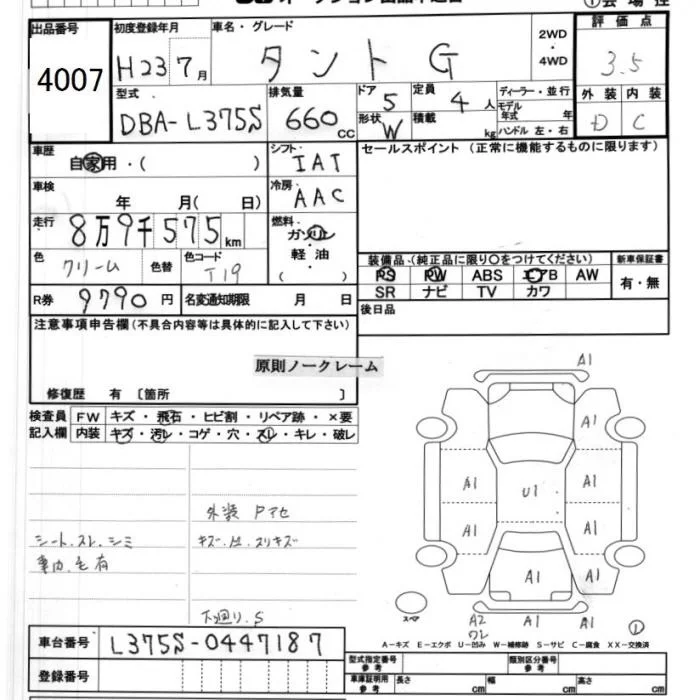 出品番号
4007
初度登録年月
H23 7月
車名・グレード
タント G
2WD
・
4WD
評価点
3.5
外装 内装
D C
型式
DBA-L375S
排気量
660 cc
ドア 5
形状 W
定員 4 人
積載 kg
ディーラー・並行
モデル年式 年
ハンドル 左・右
車歴
自家用・( )
シフト
IAT
セールスポイント (正常に機能するものに限ります)
車検
年 月( 日)
冷房
AAC
走行
8万9千575km
燃料
ガソリン
・
軽油
( )
色
クリーム
色替
色コード
T19
装備品(純正品に限り○をつけてください)
新車保証書
PS PW ABS エアB AW
有・無
SR ナビ TV カワ
R券 9790円
名変通知期限 月 日
後日品
注意事項申告欄(不具合内容等は具体的に記入して下さい)
原則ノークレーム
修復歴 有 〔箇所 〕
検査員記入欄
FW キズ・飛石・ヒビ割・リペア跡・×要
内装 キズ・汚レ・コゲ・穴・スレ・キレ・破レ
外装 Pマセ
シート.スレ.シミ
キズ.凹.スリキズ
車内.毛有
下廻り.S
A1
A1
A1
A1
U1
A1
A1
A1
A1
スペア
A2
ワレ
A1
A1
①
A-キズ E-エクボ U-凹み W-補修跡 S-サビ C-腐食 XX-交換済
車台番号
L375S-0447187
登録番号
型式指定番号
参考
類別区分番号
参考
車庫証明用
参考
長さ cm
幅 cm
高さ cm